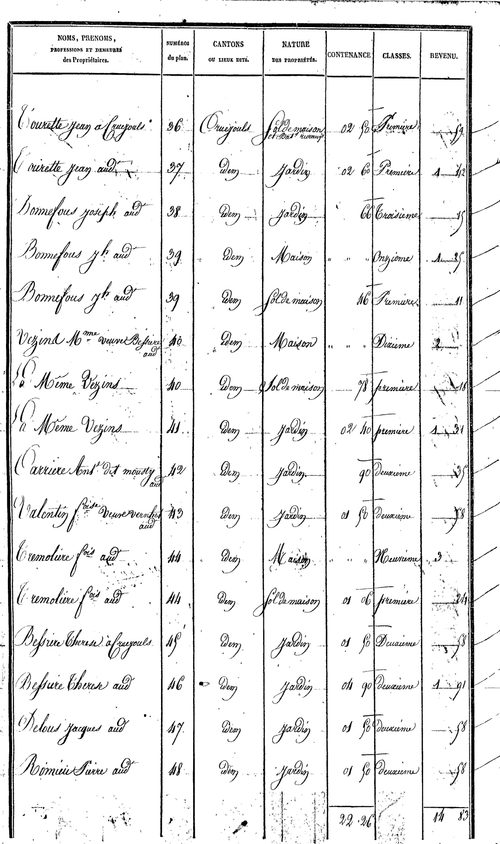 NOMS, PRENOMS, PROFESSIONS ET DEMEURES des Propriétaires. NUMÉROS du plan. CANTONS OU LIEUX DITS. NATURE DES PROPRIÉTÉS. CONTENANCE. CLASSES. REVENU.
Tourette Jean a Cruejouls 36 Cruejouls Sol de maison 02 50 Première
Tourette Jean aud 37 Idem Jardin 02 60 Première 1 42
Bonnefous Joseph aud 38 Idem Jardin 66 Troisieme 15
Bonnefous Jh aud 39 Idem Maison " " Onzième 1 25
Bonnefous Jh aud 39 Idem Sol de maison 46 Premiere 11
Vezins Mme veuve Bessiere aud 40 Idem Maison " " Dixieme 2
La Même Vezins 40 Idem Sol de maison 78 première 18
La Même Vezins 41 Idem Jardin 02 40 première 1 31
Carriere Ant. dit aud 42 Idem Jardin 90 deuxieme 35
Valentin foise veuve aud 43 Idem Jardin 01 50 deuxieme 58
Tremoliere fois aud 44 Idem Maison " " Neuvieme 3
Tremoliere fois aud 44 Idem Sol de maison 01 06 première 24
Bessiere Therese a Cruejouls 45 Idem Jardin 01 50 Deuxieme 58
Bessiere Therese aud 46 Idem Jardin 04 90 deuxieme 1 91
Delous Jacques aud 47 Idem Jardin 01 50 deuxieme 58
Romieu Pierre aud 48 Idem Jardin 01 50 deuxieme 58
22 26 14 83